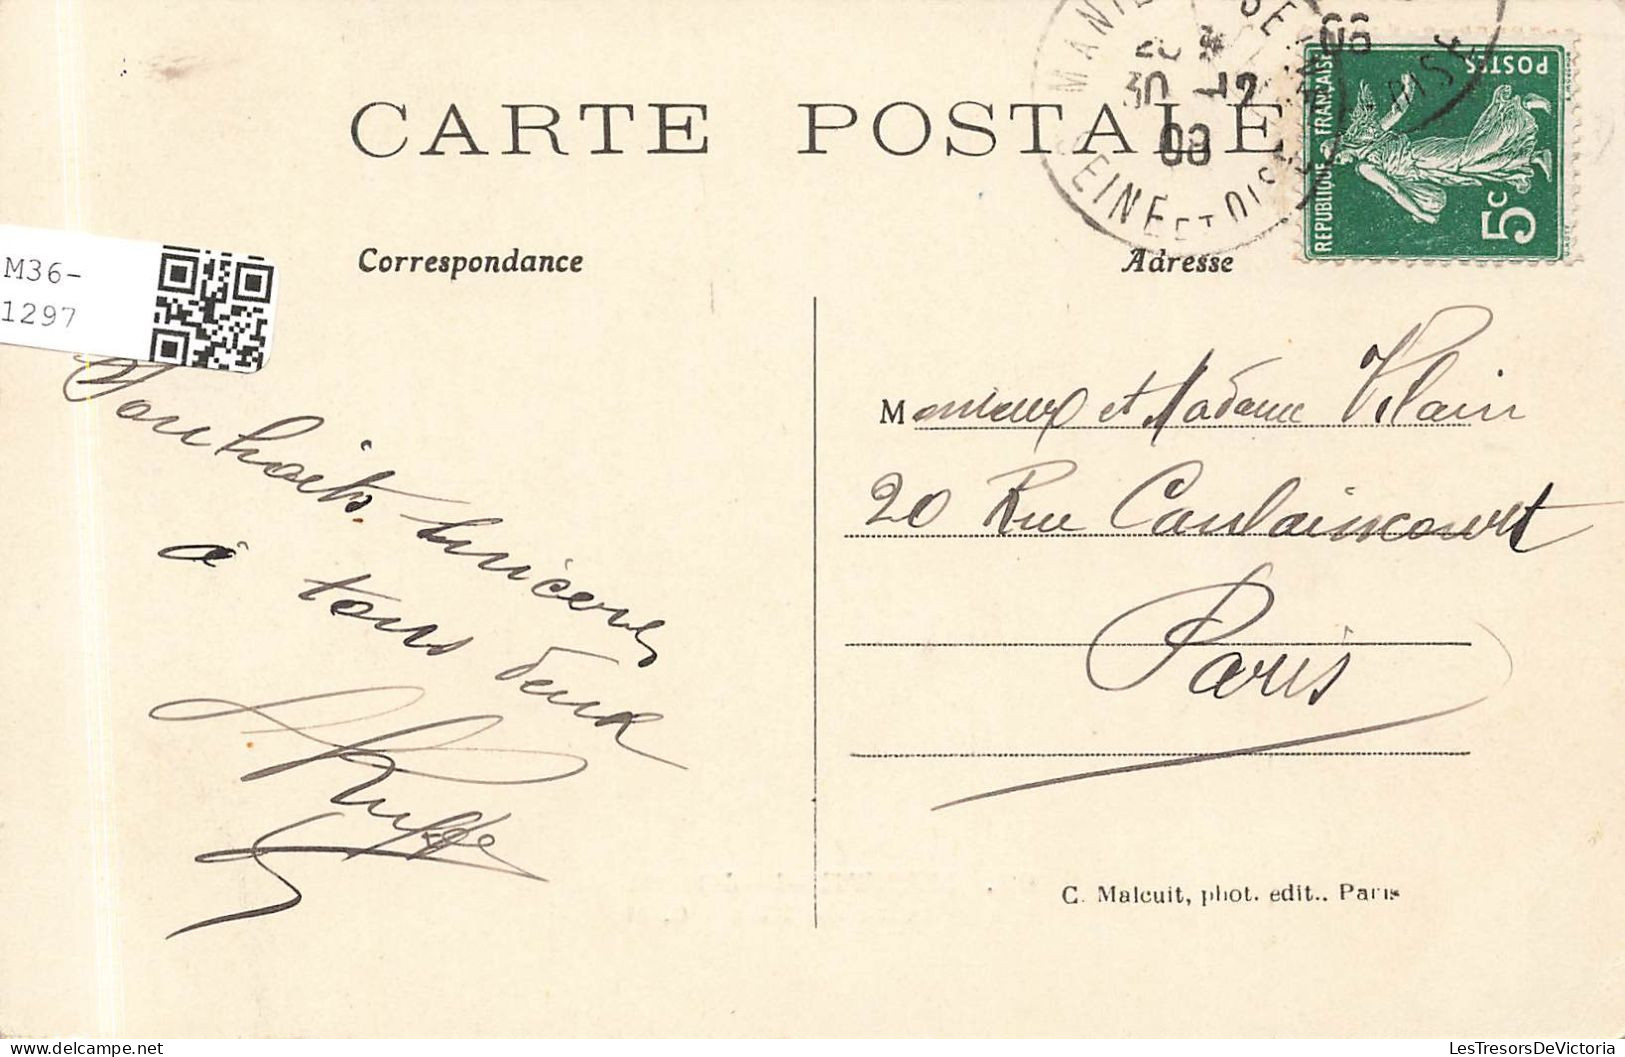 CARTE POSTALE
MANTES
30 -12
08
SEINE ET OISE
REPUBLIQUE FRANÇAISE
POSTES
5c
M36-
1297
Correspondance
Adresse
Souhaits sincères
à tous deux
Monsieur et Madame Vilain
20 Rue Caulaincourt
Paris
C. Malcuit, phot. edit.. Paris
LesTresorsDeVictoria